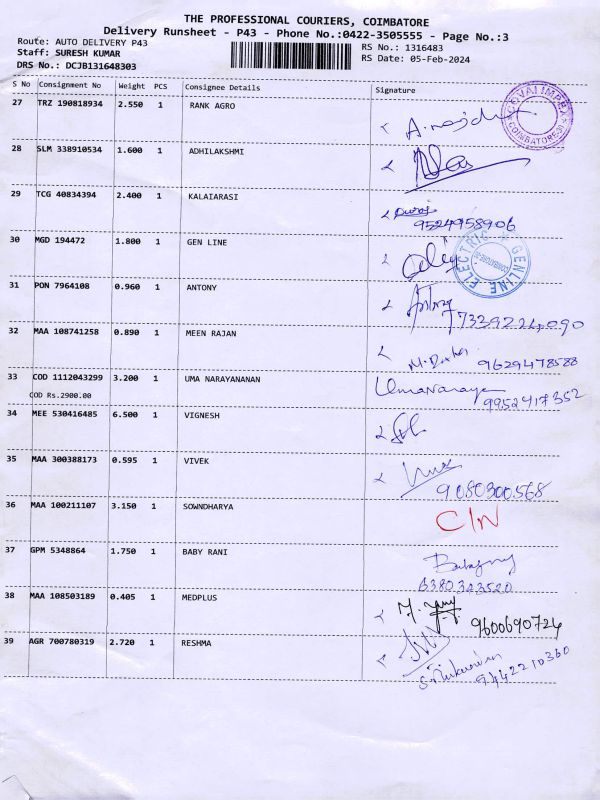 THE PROFESSIONAL COURIERS, COIMBATORE
Delivery Runsheet - P43 - Phone No.:0422-3505555 - Page No.:3
Route: AUTO DELIVERY P43 RS No.: 1316483
Staff: SURESH KUMAR RS Date: 05-Feb-2024
DRS No.: DCJB131648303
S No Consignment No Weight PCS Consignee Details Signature
27 TRZ 190818934 2.550 1 RANK AGRO
COVAI IMPEX
COIMBATORE
28 SLM 338910534 1.600 1 ADHILAKSHMI
29 TCG 40834394 2.400 1 KALAIARASI
9524958906
30 MGD 194472 1.800 1 GEN LINE
GENLINE ELECTRIC
31 PON 7964108 0.960 1 ANTONY
Antony 7339224090
32 MAA 108741258 0.890 1 MEEN RAJAN
9629478588
33 COD 1112043299 3.200 1 UMA NARAYANANAN Umanaraya
COD Rs.2900.00 9952417352
34 MEE 530416485 6.500 1 VIGNESH
35 MAA 300388173 0.595 1 VIVEK
9080300568
36 MAA 100211107 3.150 1 SOWNDHARYA C/N
37 GPM 5348864 1.750 1 BABY RANI
6380343520
38 MAA 108503189 0.405 1 MEDPLUS
9600690724
39 AGR 700780319 2.720 1 RESHMA
9442210360